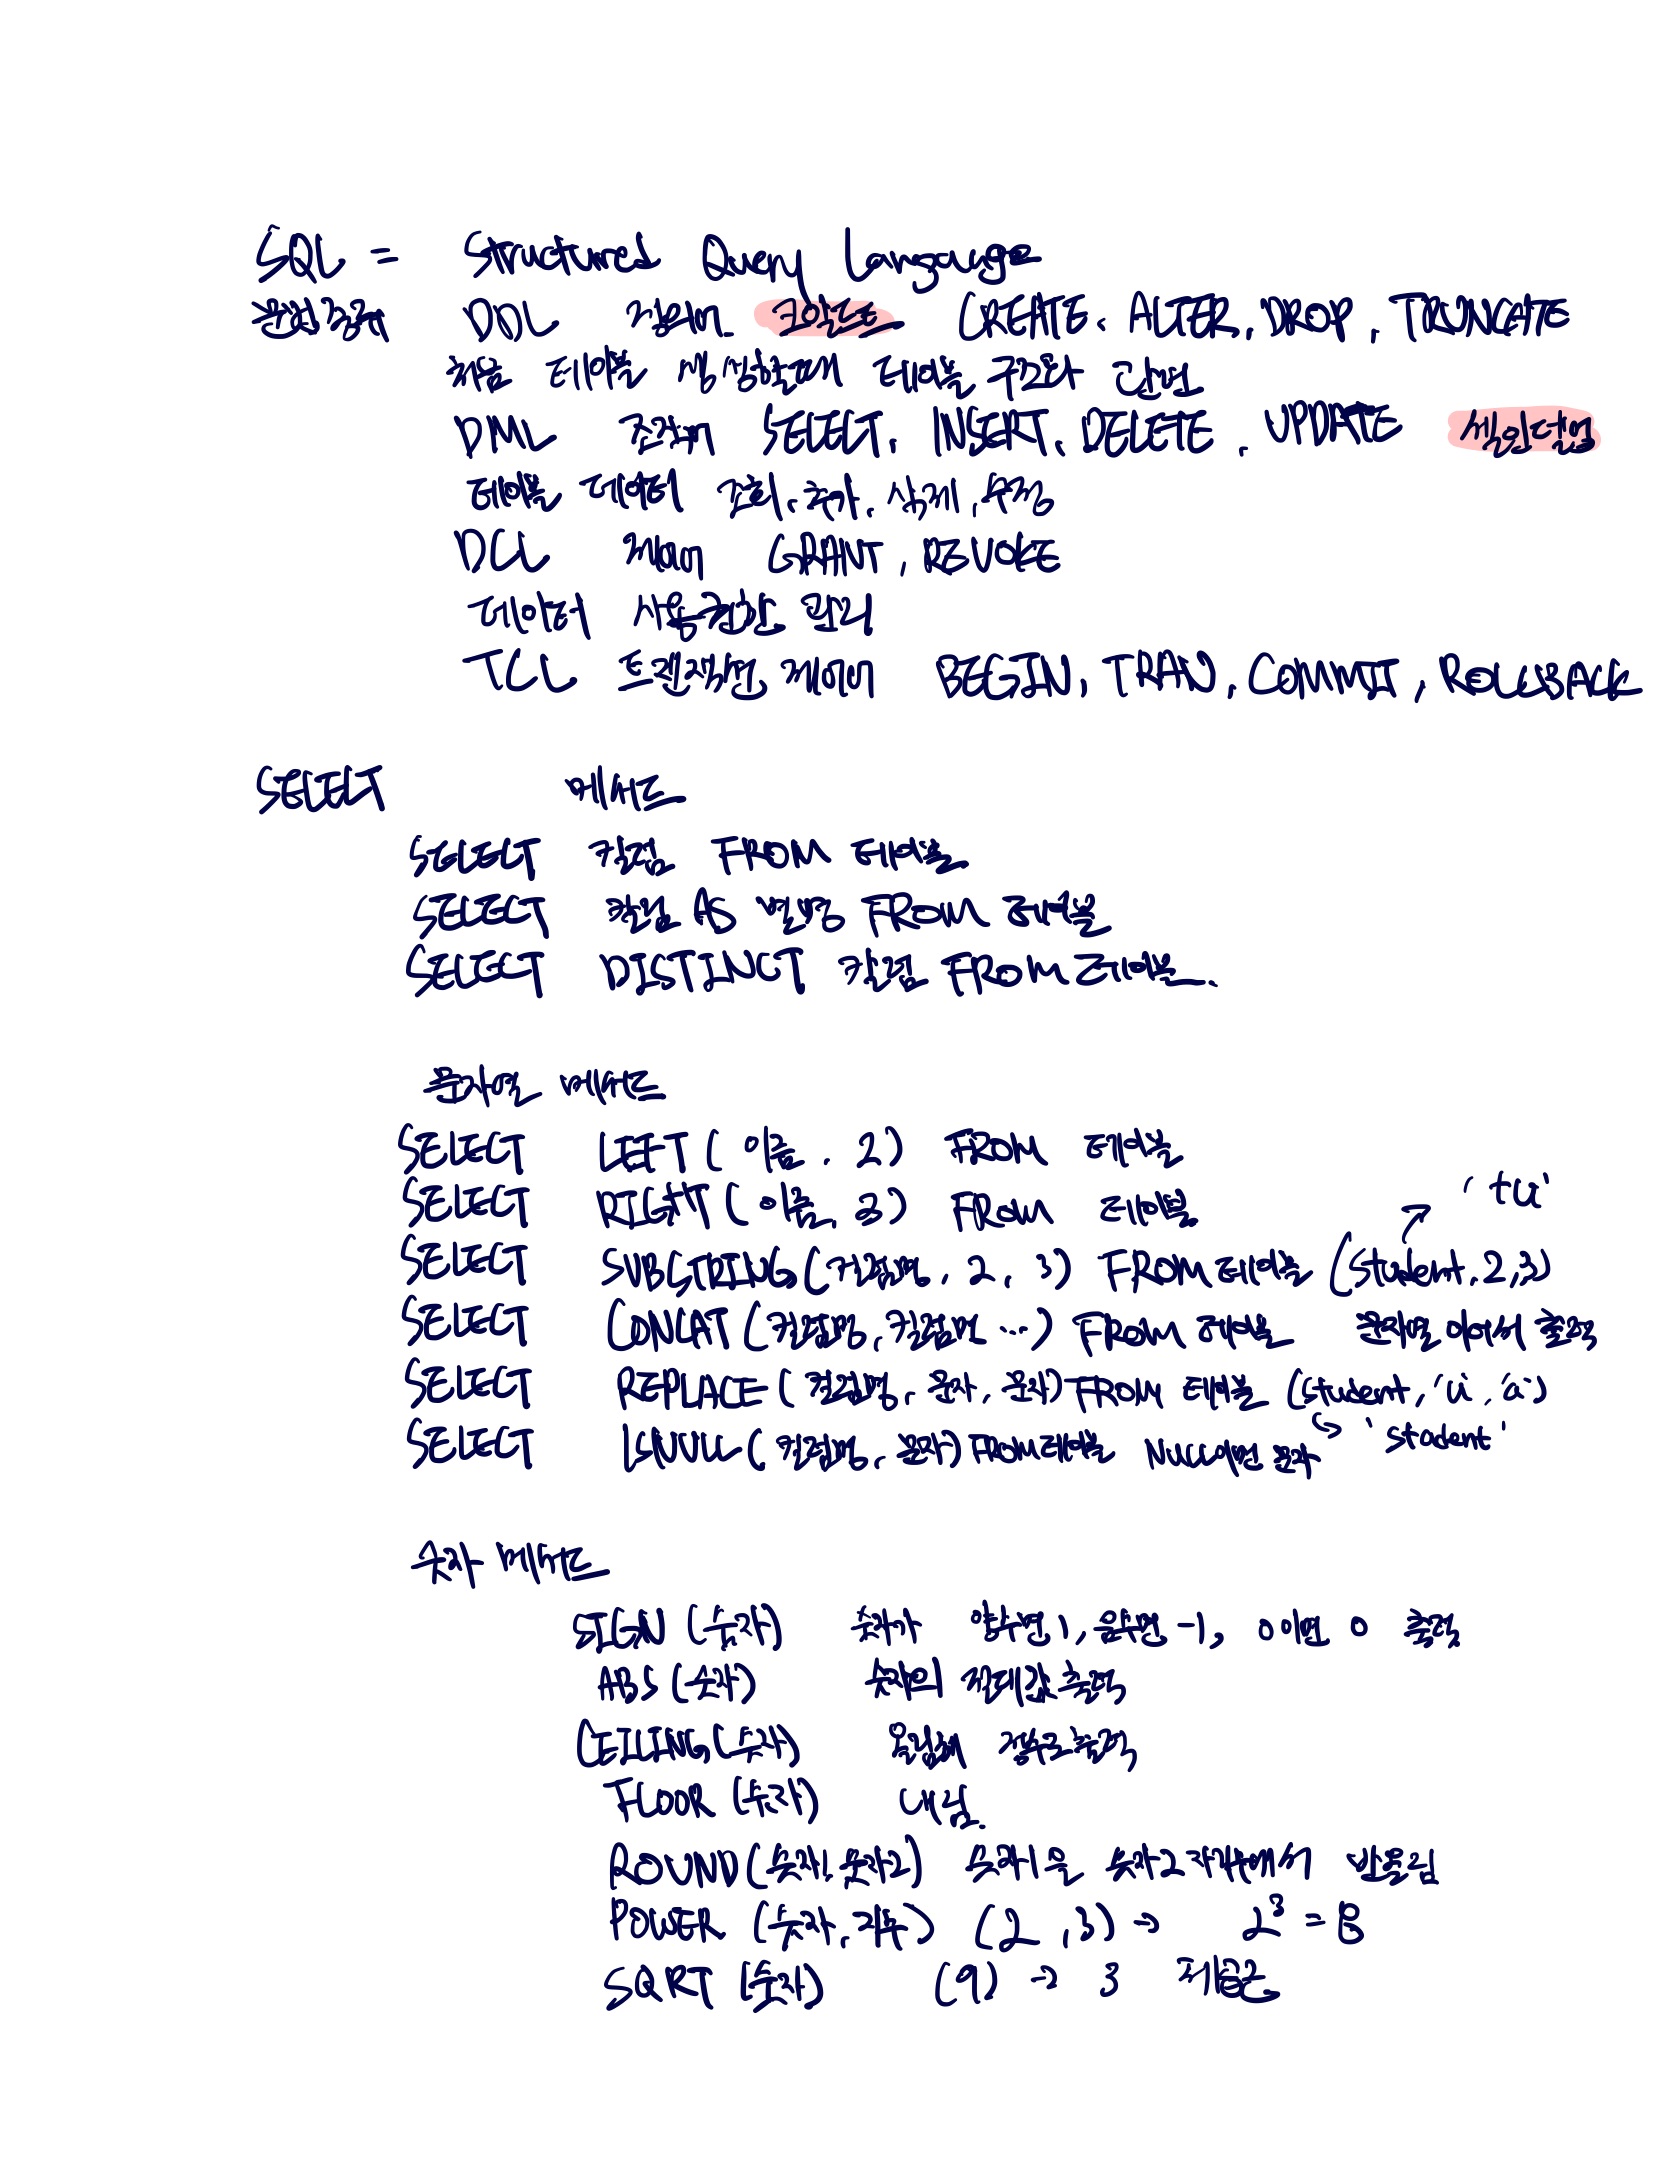 SQL = Structured Query Langauge
문법종류 DDL 정의어 크알드트 CREATE, ALTER, DROP, TRUNCATE
처음 테이블 생성할때 테이블 구조와 관련
DML 조작어 SELECT, INSERT, DELETE, UPDATE 셀인델업
테이블 데이터 조회, 추가, 삭제, 수정
DCL 제어어 GRANT, REVOKE
데이터 사용권한 관리
TCL 트랜잭션 제어어 BEGIN, TRAN, COMMIT, ROLLBACK
SELECT 메서드
SELECT 컬럼 FROM 테이블
SELECT 컬럼 AS 별명 FROM 테이블
SELECT DISTINCT 칼럼 FROM 테이블.
문자열 메서드
SELECT LEFT(이름, 2) FROM 테이블
SELECT RIGHT(이름, 3) FROM 테이블
'tu'
SELECT SUBSTRING(컬럼명, 2, 3) FROM 테이블 (student, 2, 3)
SELECT CONCAT(컬럼명, 컬럼명 ...) FROM 테이블 문자열 이어서 출력
SELECT REPLACE(컬럼명, 문자, 문자) FROM 테이블 (student, 'u', 'a')
SELECT ISNULL(컬럼명, 문자) FROM 테이블 NULL이면 문자 → 'stadent'
숫자 메서드
SIGN(숫자) 숫자가 양수면 1, 음수면 -1, 0이면 0 출력
ABS(숫자) 숫자의 절대값 출력
CEILING(숫자) 올림해 정수로출력
FLOOR(숫자) 내림
ROUND(숫자1, 숫자2) 숫자1을 숫자2 자리수에서 반올림
POWER(숫자, 지수) (2, 3) → 2³ = 8
SQRT(숫자) (9) → 3 제곱근